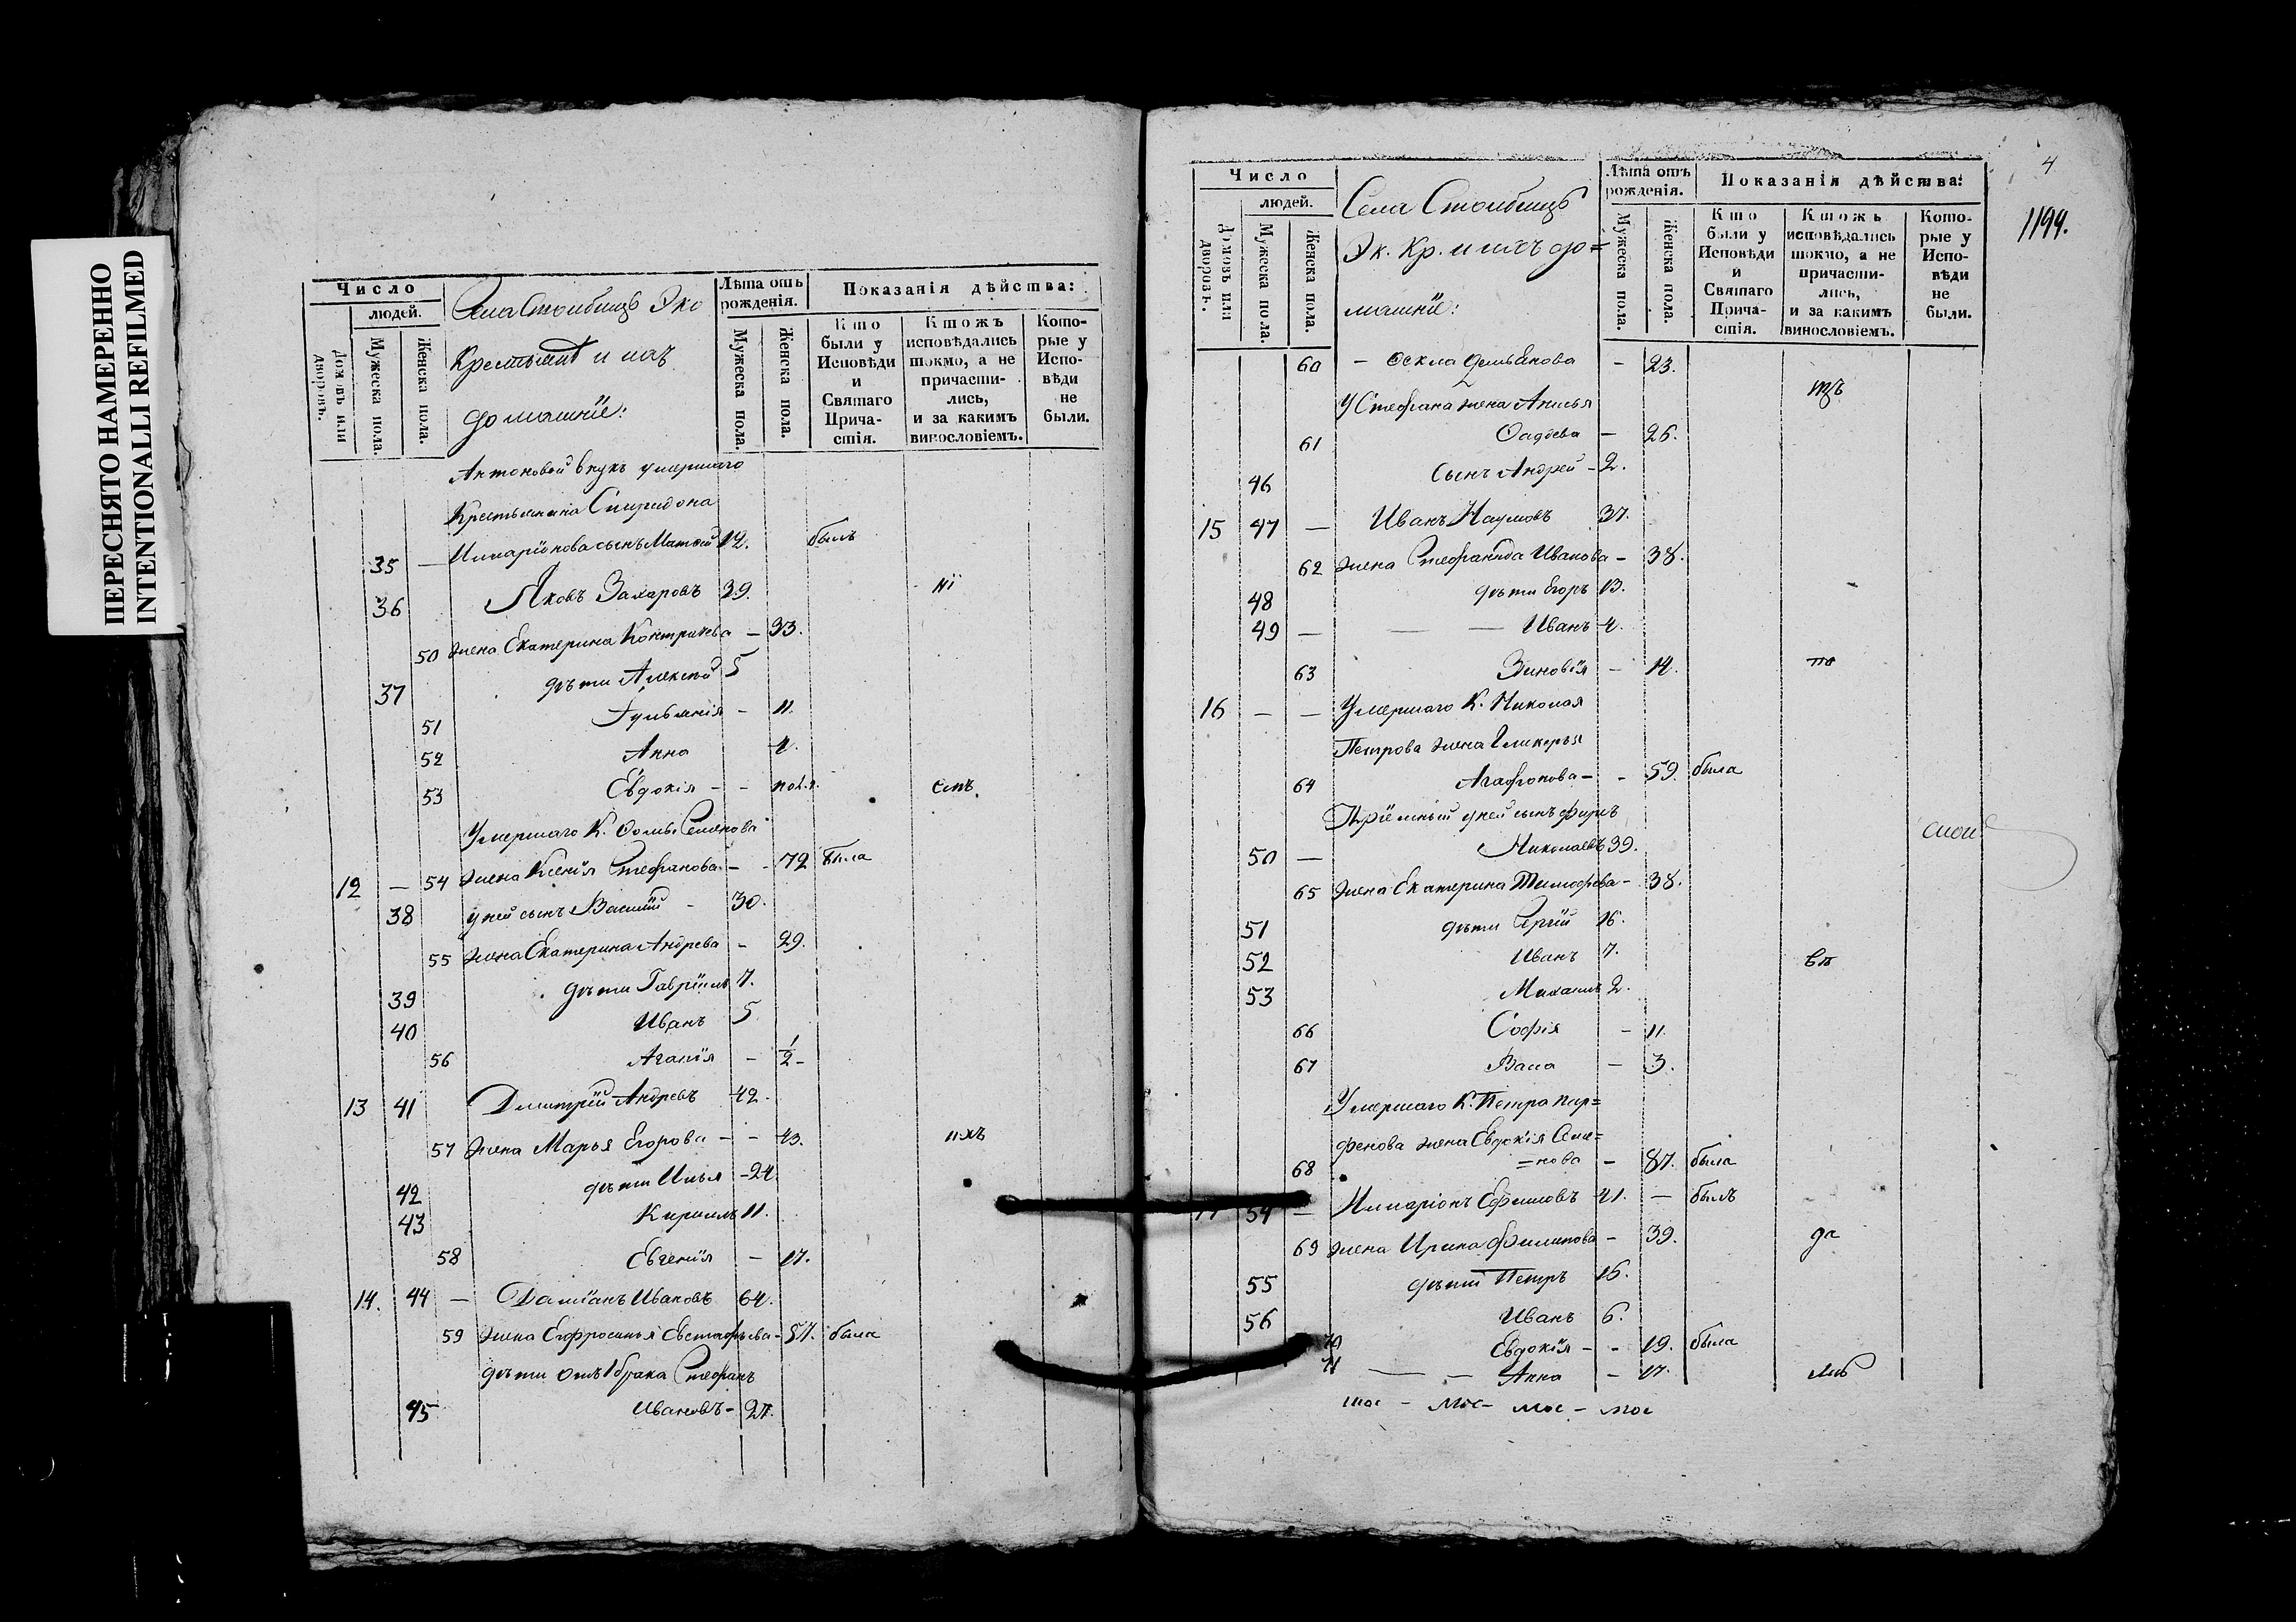 ПЕРЕСНЯТО НАМЕРЕННО
INTENTIONALLI REFILMED
Число
людей.
Домовъ или дворовъ.
Мужеска пола.
Женска пола.
Села Столбищъ Эко
Крестьяне и ихъ
домашніе:
Лѣта отъ рожденія.
Мужеска пола.
Женска пола.
Показанія дѣйства:
Кто были у Исповѣди и Святаго Причастія.
Ктожъ исповѣдались токмо, а не причастились, и за какимъ винословіемъ.
Которые у Исповѣди не были.
Антоновой внукъ умершаго
Крестьянина Спиридона
35 — Иларіонова сынъ Матѳей 12. былъ
36 Яковъ Захаровъ 39. ні
50 жена Екатерина — 33.
37 дѣти Алексѣй 5
51 Іульянія — 11.
52 Анна 4.
53 Евдокія — —
Умершаго К. Ѳомы Семенова
12 — 54 жена Ксенія Стефанова — — 72 была
38 у ней сынъ Василій — 30.
55 жена Екатерина Андрева — 29.
39 дѣти Гавріилъ 7.
40 Иванъ 5
56 Агапія — 1/2 —
13 41 Димитрій Андревъ 42.
57 жена Марья Егорова — — 43. ихъ
42 дѣти Илья — 24.
43 Кирилъ 11.
58 Евгенія — 17.
14. 44 — Даміанъ Ивановъ 64.
59 жена Ефросинья Евстафьева — 57. была
дѣти отъ 1 брака Стефанъ
45 Ивановъ — 27.
4
1194.
Число
людей.
Домовъ или дворовъ.
Мужеска пола.
Женска пола.
Села Столбищъ
Эк. Кр. и ихъ до=
машніе:
Лѣта отъ рожденія.
Мужеска пола.
Женска пола.
Показанія дѣйства:
Кто были у Исповѣди и Святаго Причастія.
Ктожъ исповѣдались токмо, а не причастились, и за какимъ винословіемъ.
Которые у Исповѣди не были.
60 — Ѳекла Демьянова — 23.
У Стефана жена Анисья
61 Ѳадѣева — 26.
46 сынъ Андрей — 2.
15 47 — Иванъ Наумовъ 37.
62 жена Стефанида Иванова — 38.
48 дѣти Егоръ 13.
49 — — — Иванъ 4.
63 Зиновія — 14. по
16 — — Умершаго К. Николая
Петрова жена Гликерья
64 Агафонова — — 59. была
Пріемный у ней сынъ Фирсъ
50 — Николаевъ 39.
65 жена Екатерина Тимофева — 38.
51 дѣти Сергій 16.
52 Иванъ 7.
53 Михаилъ 2.
66 Софія — 11.
67 Васса — 3.
Умершаго К. Петра Пар=
фенова жена Евдокія Семе=
68 =нова — 87. была
17 54 — Иларіонъ Ефимовъ 41. — былъ
69 жена Ирина Филипова — 39. да
55 дѣти Петръ 16.
56 Иванъ 6.
70 Евдокія — — 19. была
71 — — Анна — 17.